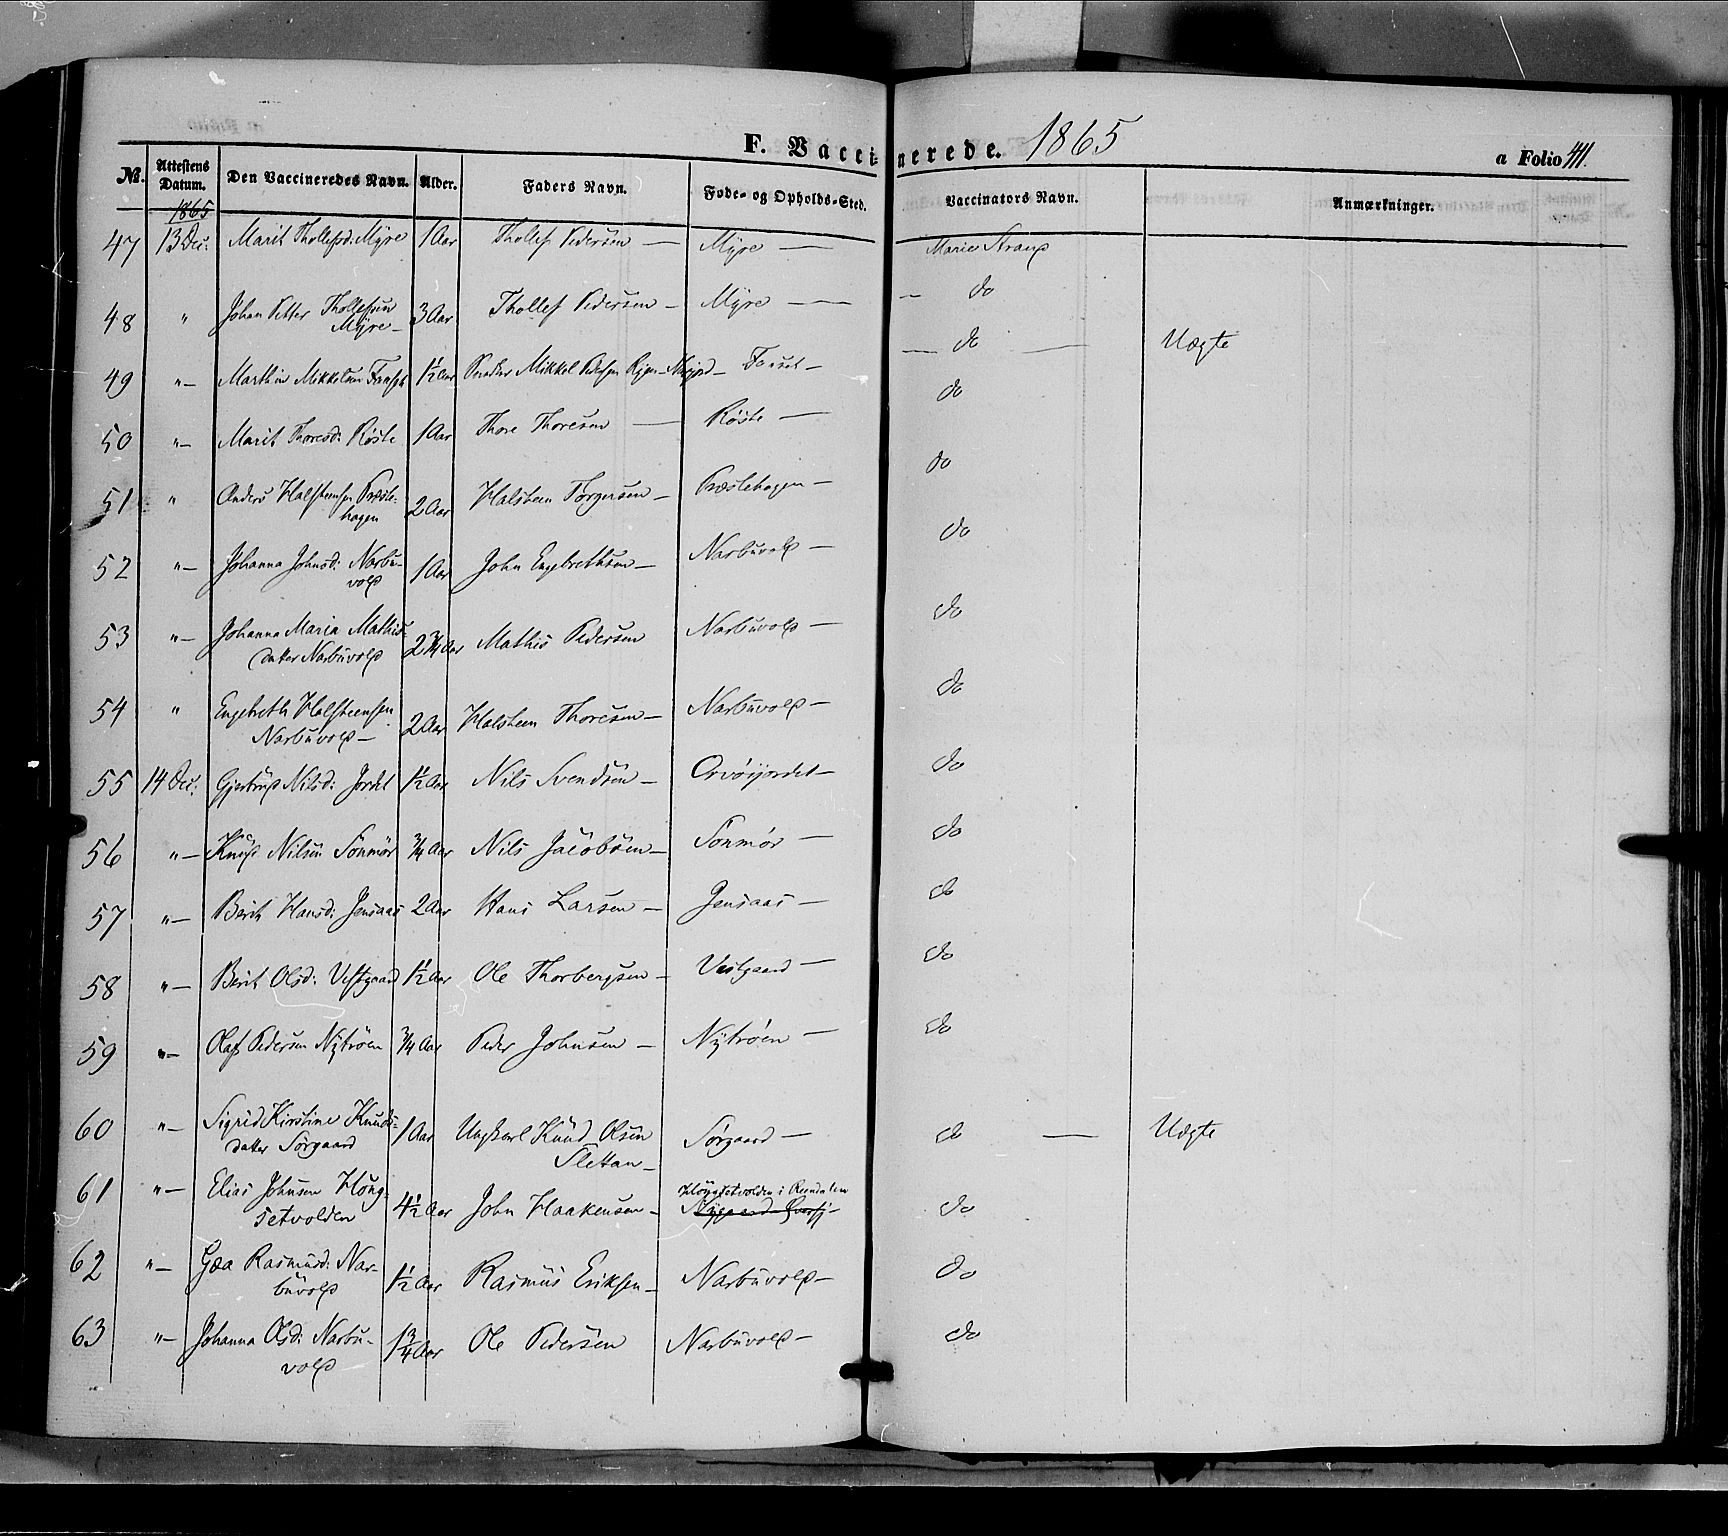 F. Vaccinerede. 1865
a Folio 411.
№. Attestens Datum. Den Vaccineredes Navn. Alder. Faders Navn. Føde- og Opholds-Sted. Vaccinators Navn. Anmærkninger.
1865
47 13 Dec: Marit Thollefsd: Mÿre 1 Aar Thollef Pedersen — Mÿre — Marie Straup
48 " Johan Petter Thollefsen Mÿre — 3 Aar Thollef Pedersen — Mÿre — — do
49 "— Marthin Mikkelsen 1½ Aar Mikkel Pedersen — Fonset — — do — Uægte
50 "— Marit Thoresd: Røste 1 Aar Thore Thoresen — Røste — do
51 " Anders Halsteensen Præste-
hagen 2 Aar Halsteen Torgersen — Præstehagen — do
52 "— Johanna Johnsd: Narbu-
vold 1 Aar John Engebrethsen — Narbuvold — do
53 "— Johanna Maria Mathis-
datter Narbuvold 2¾ Aar Mathis Pedersen Narbuvold — do
54 " Engebreth Halsteensen
Narbuvold — 2 Aar Halsteen Thoresen — Narbuvold — do
55 14 Dec: Gjertrud Nilsd: Jordet 1½ Aar Nils Svendsen — Orvøsjordet — do
56 "— Knud Nilsen Tønmør ¾ Aar Nils Jacobsen — Tønmør — do
57 "— Berit Hansd: Jensaas 2 Aar Hans Larsen — Jensaas — do
58 "— Berit Olsd: Vestgaard 1½ Aar Ole Thorbergsen — Vestgaard — do
59 "— Olaf Pedersen Nÿtrøen ¾ Aar Peder Johnsen — Nÿtrøen — do
60 "— Sigrid Kirstine Knuds-
datter Sørgaard 1 Aar Ungkarl Knud Olsen
Slettan — Sørgaard — do — Uægte
61 "— Elias Johnsen Høng-
setvolden 4½ Aar John Haakensen — Høngsetvolden i Reendalen
do
62 "— Gøa Rasmusd: Nar-
buvold 1½ Aar Rasmus Eriksen — Narbuvold — do
63 "— Johanna Olsd: Narbu-
vold 1¾ Aar Ole Pedersen Narbuvold — do